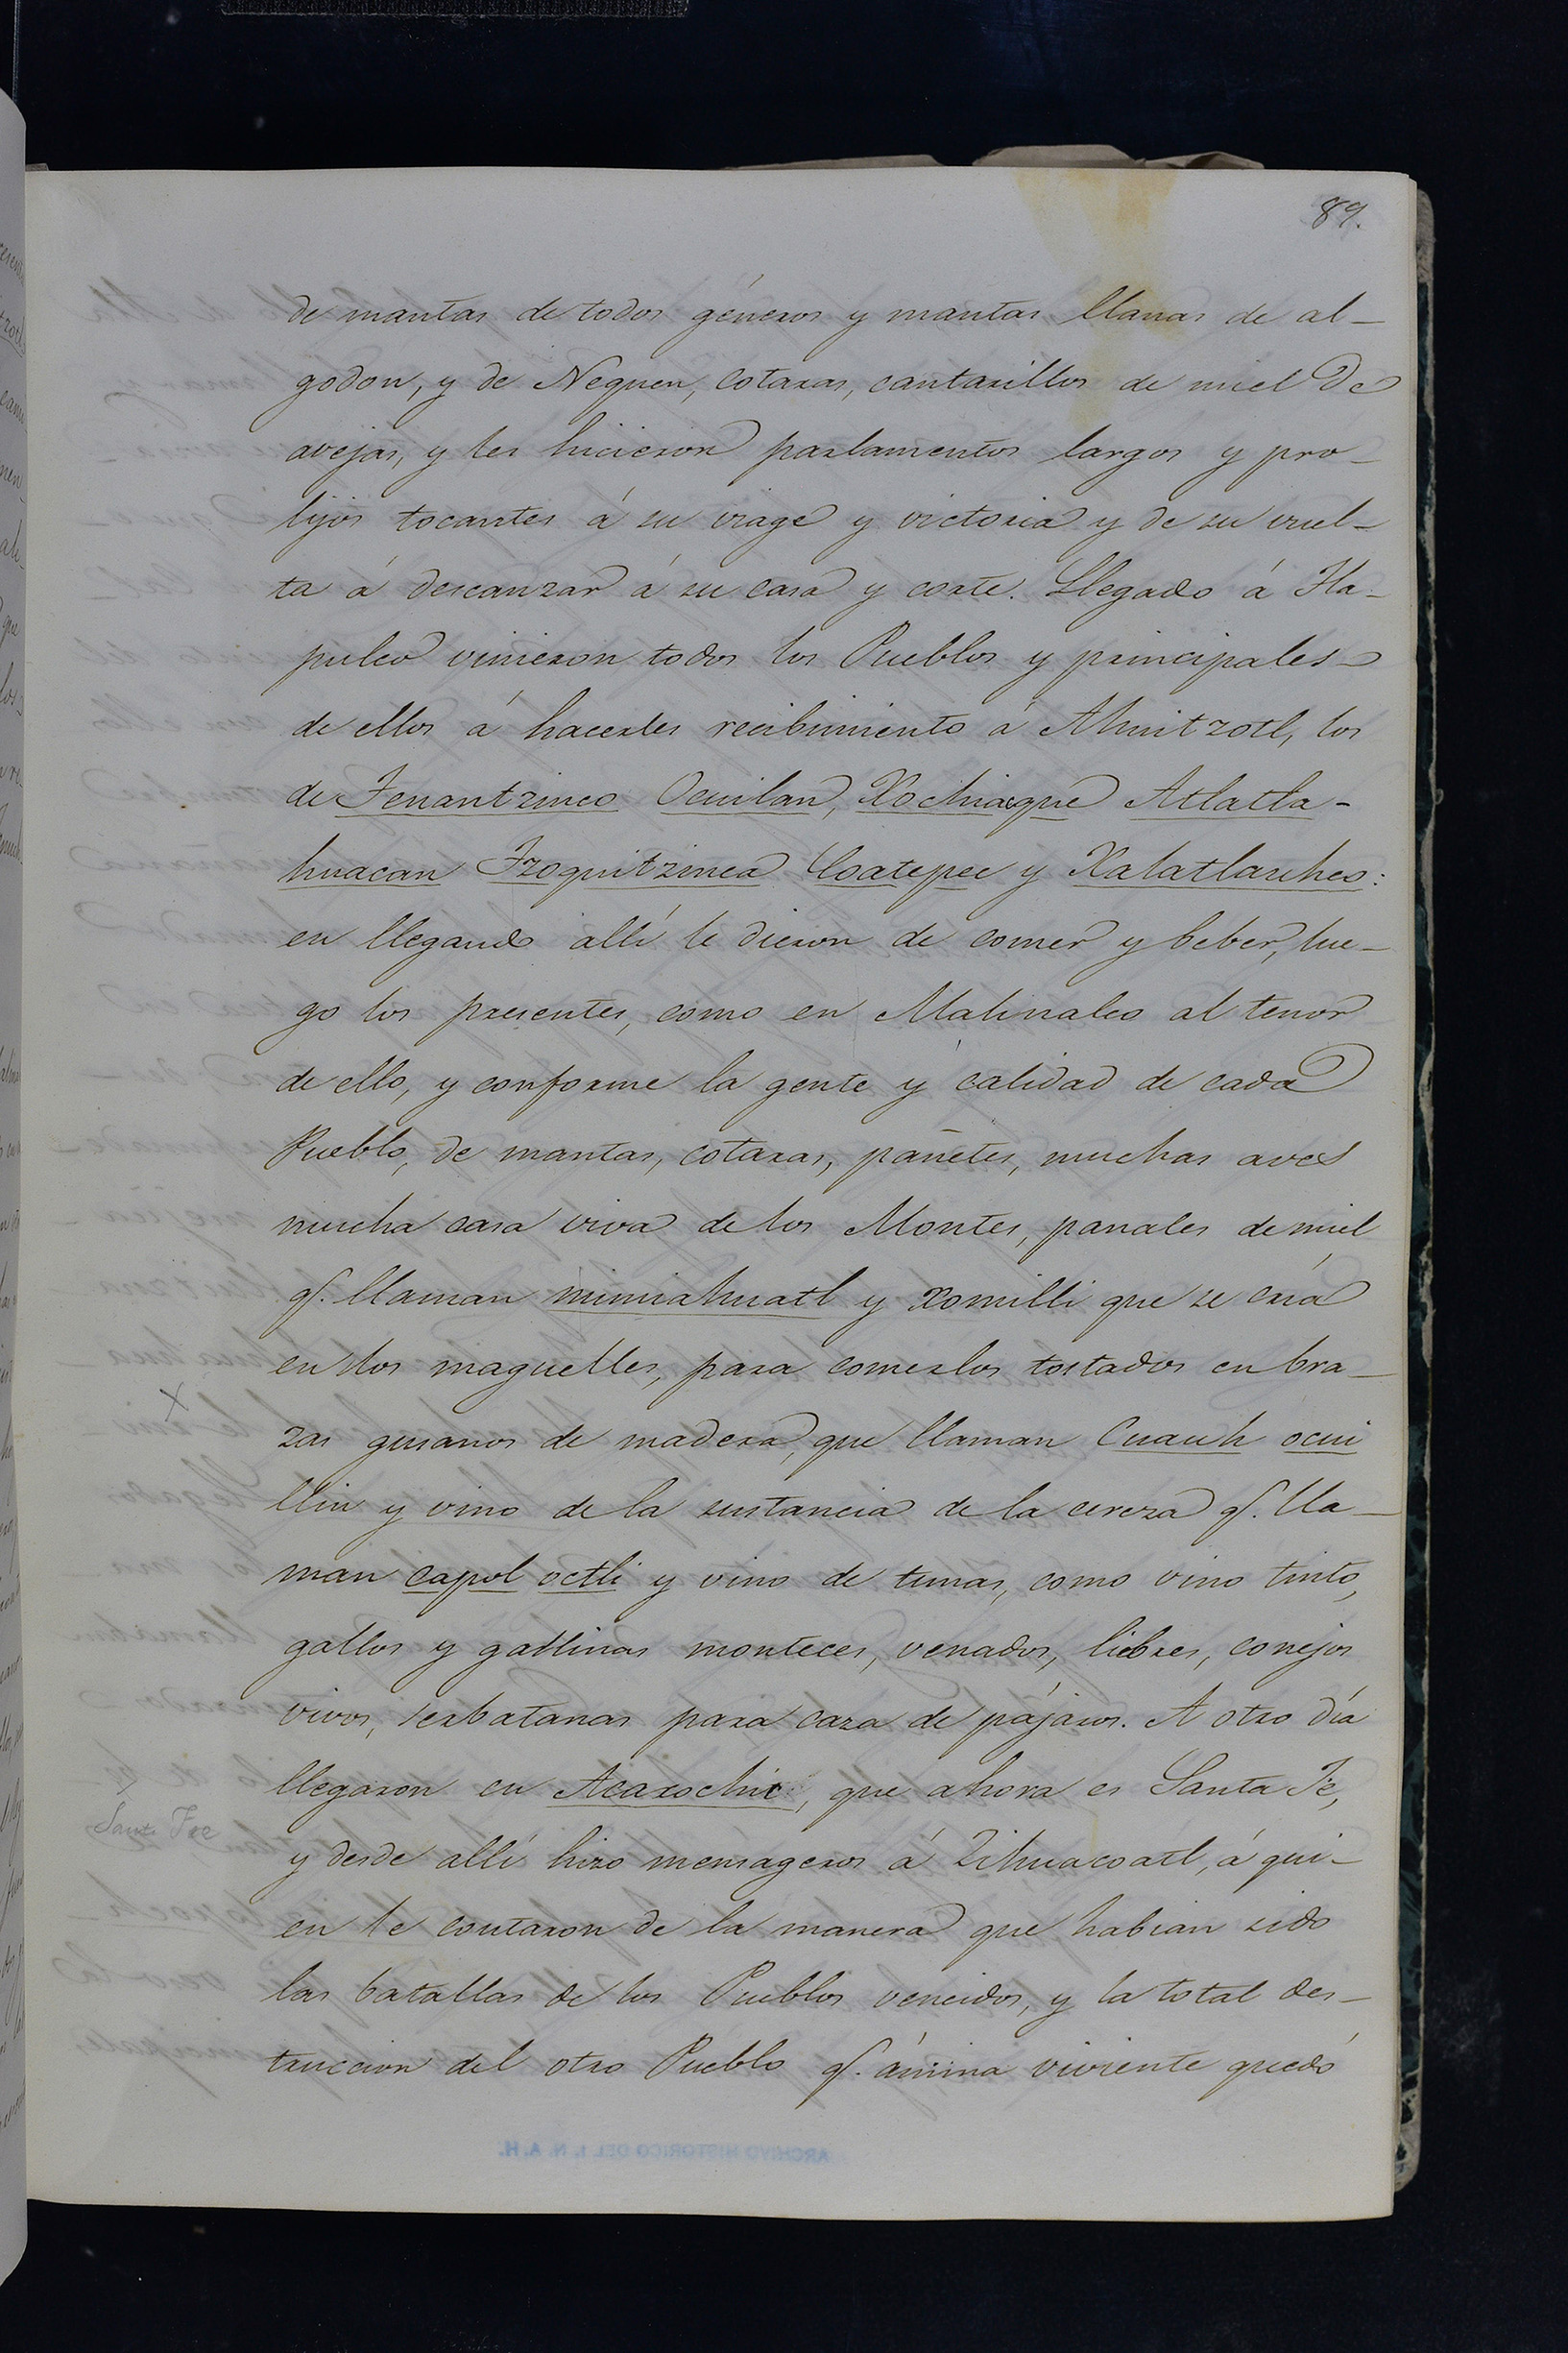 89.
de mantas de todos géneros y mantas llanas de al-
godon, y de Nequen, cotaras, cantarillos de miel de
avejas, y les hicieron parlamentos largos y pro-
lijos tocantes á su viage y victoria y de su vuel-
ta á descanzar á su casa y corte. Llegado á Tla-
pulco vinieron todos los Pueblos y principales
de ellos á hacerles recibimiento á Ahuitzotl, los
de Tenantzinco Ocuilan, Xochiaque Atlatla-
huacan Tzoquitzinca Coatepec y Xalatlauhco:
en llegando allí le dieron de comer y beber, lue-
go los presentes, como en Malinalco al tenor
de ello, y conforme la gente y calidad de cada
Pueblo, de mantas, cotaras, pañetes, muchas aves
mucha casa viva de los Montes, panales de miel
q. llaman mimiahuatl y Xomilli que se cría
en los maguelles, para comerlos tostados en bra-
X
zas gusanos de madera, que llaman Cuauh ocui
llin y vino de la sustancia de la cereza q. lla-
man capol octli y vino de tunas, como vino tinto,
gallos y gallinas monteces, venados, liebres, conejos
vivos, serbatanas para caza de pájaros. A otro día
llegaron en Acaxochic, que ahora es Santa Fe,
Santa Fee
y desde allí hizo mensageros á Zihuacoatl, á qui-
en le contaron de la manera que habian sido
las batallas de los Pueblos vencidos, y la total des-
truccion del otro Pueblo q. ánima viviente quedó
ARCHIVO HISTORICO DEL I. N. A. H.